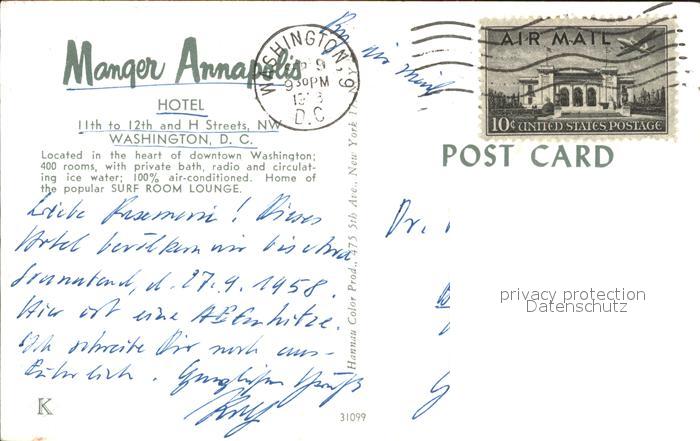 Manger Annapolis
HOTEL
11th to 12th and H Streets, NW
WASHINGTON, D. C.
Located in the heart of downtown Washington;
400 rooms, with private bath, radio and circulat-
ing ice water; 100% air-conditioned. Home of
the popular SURF ROOM LOUNGE.
Liebe Rosemarie! Dieses
Hotel bevölkern wir bis etwa
Sonnabend, d. 27.9.1958.
Hier ist eine Affenhitze.
Ich schreibe Dir noch aus-
führlich. Grüße
K
31099
Hannau Color Prod., 475 5th Ave., New York 17, N.Y.
WASHINGTON
9 30 PM
D.C
air mail
AIR MAIL
10¢ UNITED STATES POSTAGE
POST CARD
Dr.
privacy protection
Datenschutz